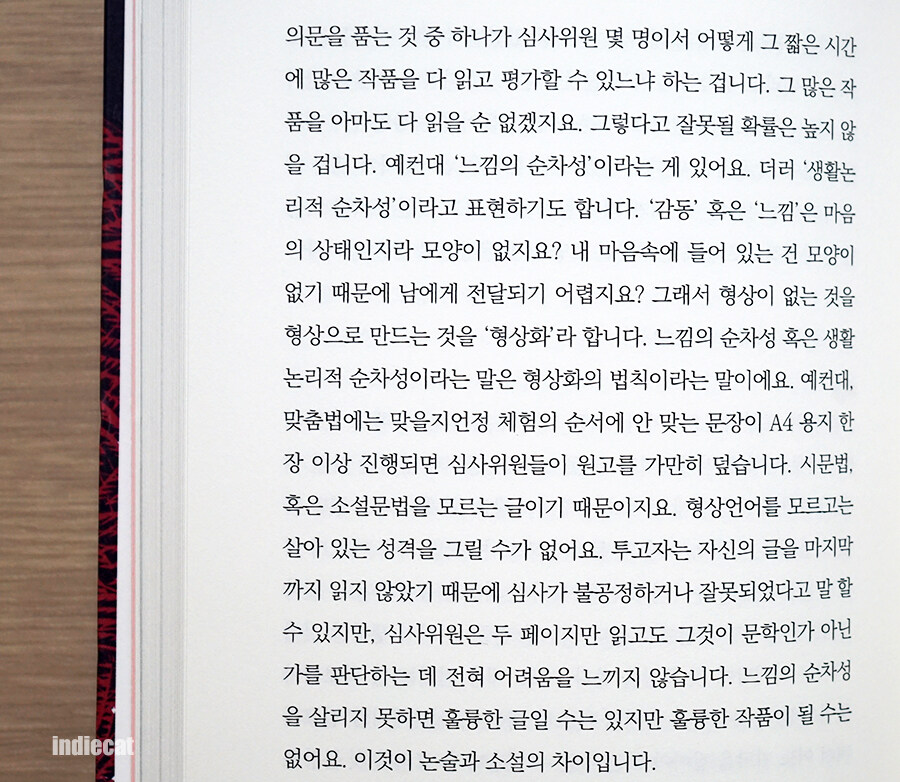 의문을 품는 것 중 하나가 심사위원 몇 명이서 어떻게 그 짧은 시간
에 많은 작품을 다 읽고 평가할 수 있느냐 하는 겁니다. 그 많은 작
품을 아마도 다 읽을 순 없겠지요. 그렇다고 잘못될 확률은 높지 않
을 겁니다. 예컨대 ‘느낌의 순차성’이라는 게 있어요. 더러 ‘생활논
리적 순차성’이라고 표현하기도 합니다. ‘감동’ 혹은 ‘느낌’은 마음
의 상태인지라 모양이 없지요? 내 마음속에 들어 있는 건 모양이
없기 때문에 남에게 전달되기 어렵지요? 그래서 형상이 없는 것을
형상으로 만드는 것을 ‘형상화’라 합니다. 느낌의 순차성 혹은 생활
논리적 순차성이라는 말은 형상화의 법칙이라는 말이에요. 예컨대,
맞춤법에는 맞을지언정 체험의 순서에 안 맞는 문장이 A4 용지 한
장 이상 진행되면 심사위원들이 원고를 가만히 덮습니다. 시문법,
혹은 소설문법을 모르는 글이기 때문이지요. 형상언어를 모르고는
살아 있는 성격을 그릴 수가 없어요. 투고자는 자신의 글을 마지막
까지 읽지 않았기 때문에 심사가 불공정하거나 잘못되었다고 말할
수 있지만, 심사위원은 두 페이지만 읽고도 그것이 문학인가 아닌
가를 판단하는 데 전혀 어려움을 느끼지 않습니다. 느낌의 순차성
을 살리지 못하면 훌륭한 글일 수는 있지만 훌륭한 작품이 될 수는
없어요. 이것이 논술과 소설의 차이입니다.
indiecat